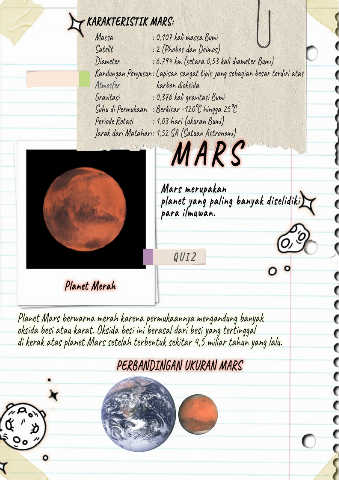 KARAKTERISTIK MARS:
Massa : 0,107 kali massa Bumi
Satelit : 2 (Phobos dan Deimos)
Diameter : 6.794 km (setara 0,53 kali diameter Bumi)
Kandungan Penyusun : Lapisan sangat tipis yang sebagian besar terdiri atas
Atmosfer karbon dioksida
Gravitasi : 0,376 kali gravitasi Bumi
Suhu di Permukaan : Berkisar -120°C hingga 25°C
Periode Rotasi : 1,03 hari (ukuran Bumi)
Jarak dari Matahari : 1,52 SA (Satuan Astronomi)
MARS
Mars merupakan
planet yang paling banyak diselidiki
para ilmuwan.
QUIZ
Planet Merah
Planet Mars berwarna merah karena permukaannya mengandung banyak
oksida besi atau karat. Oksida besi ini berasal dari besi yang tertinggal
di kerak atas planet Mars setelah terbentuk sekitar 4,5 miliar tahun yang lalu.
PERBANDINGAN UKURAN MARS